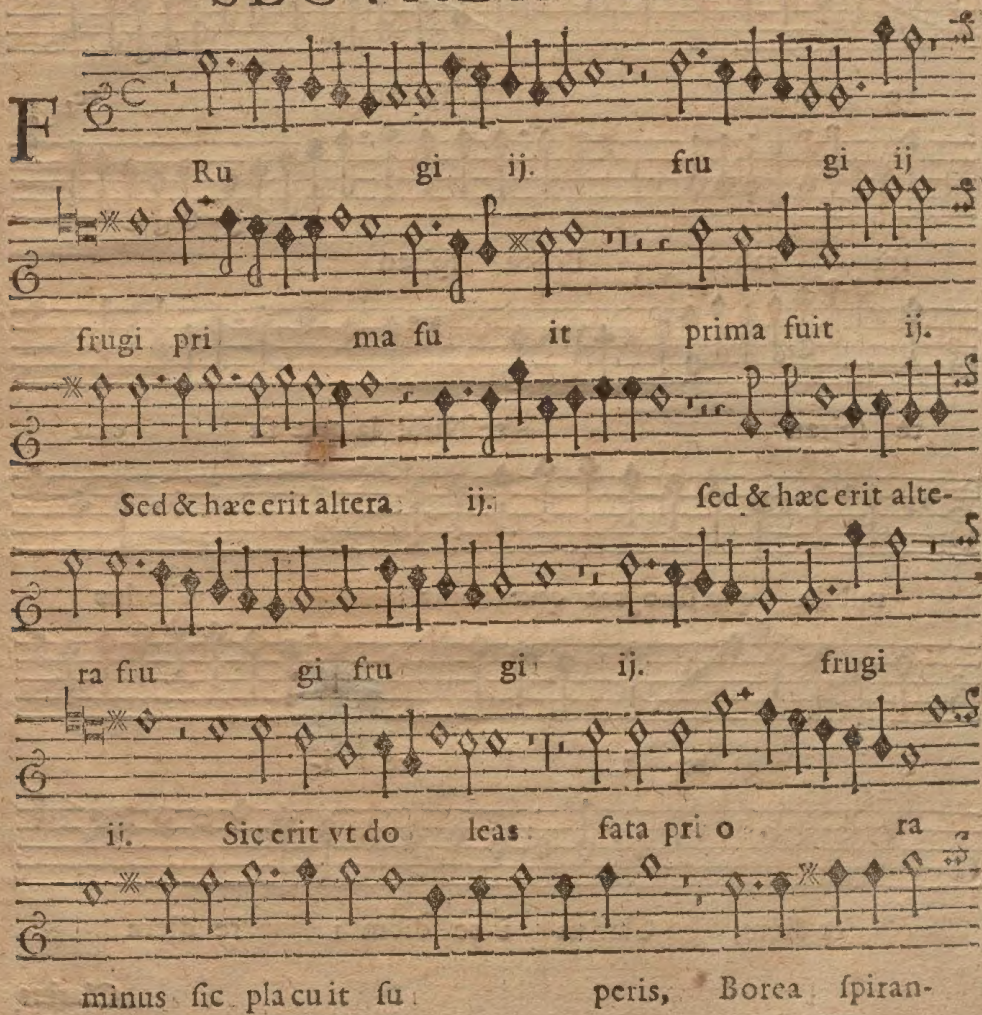 F
Ru gi ij. fru gi ij
frugi pri ma fu it prima fuit ij.
Sed & hæc erit altera ij. ſed & hæc erit alte-
ra fru gi fru gi ij. frugi
ij. Sic erit vt do leas fata pri o ra
minus ſic placuit ſu peris, Borea ſpiran-